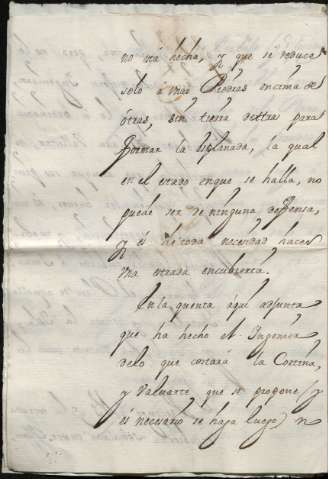 no está hecha, y que se reduce
solo á unas Piedras encima de
otras, sin tierra detras para
formar la esplanada, la qual
en el estado en que se halla, no
puede ser de ninguna defensa,
y és de toda necesidad hacer
una estrada encubierta.
En la quenta aquí adjunta
que ha hecho el Ingeniero
delo que costará la Cortina,
y Valuarte, que se propone (y
és necesario se haga luego) n